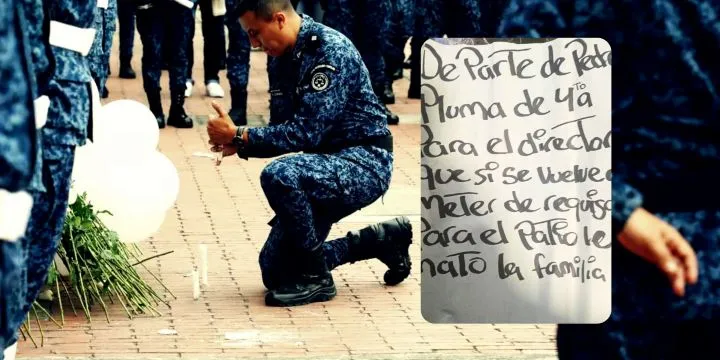 De Parte de Pedro
Pluma de 4ta
Para el director
que si se vuelve a
Meter de requisa
Para el Patio le
mato la familia